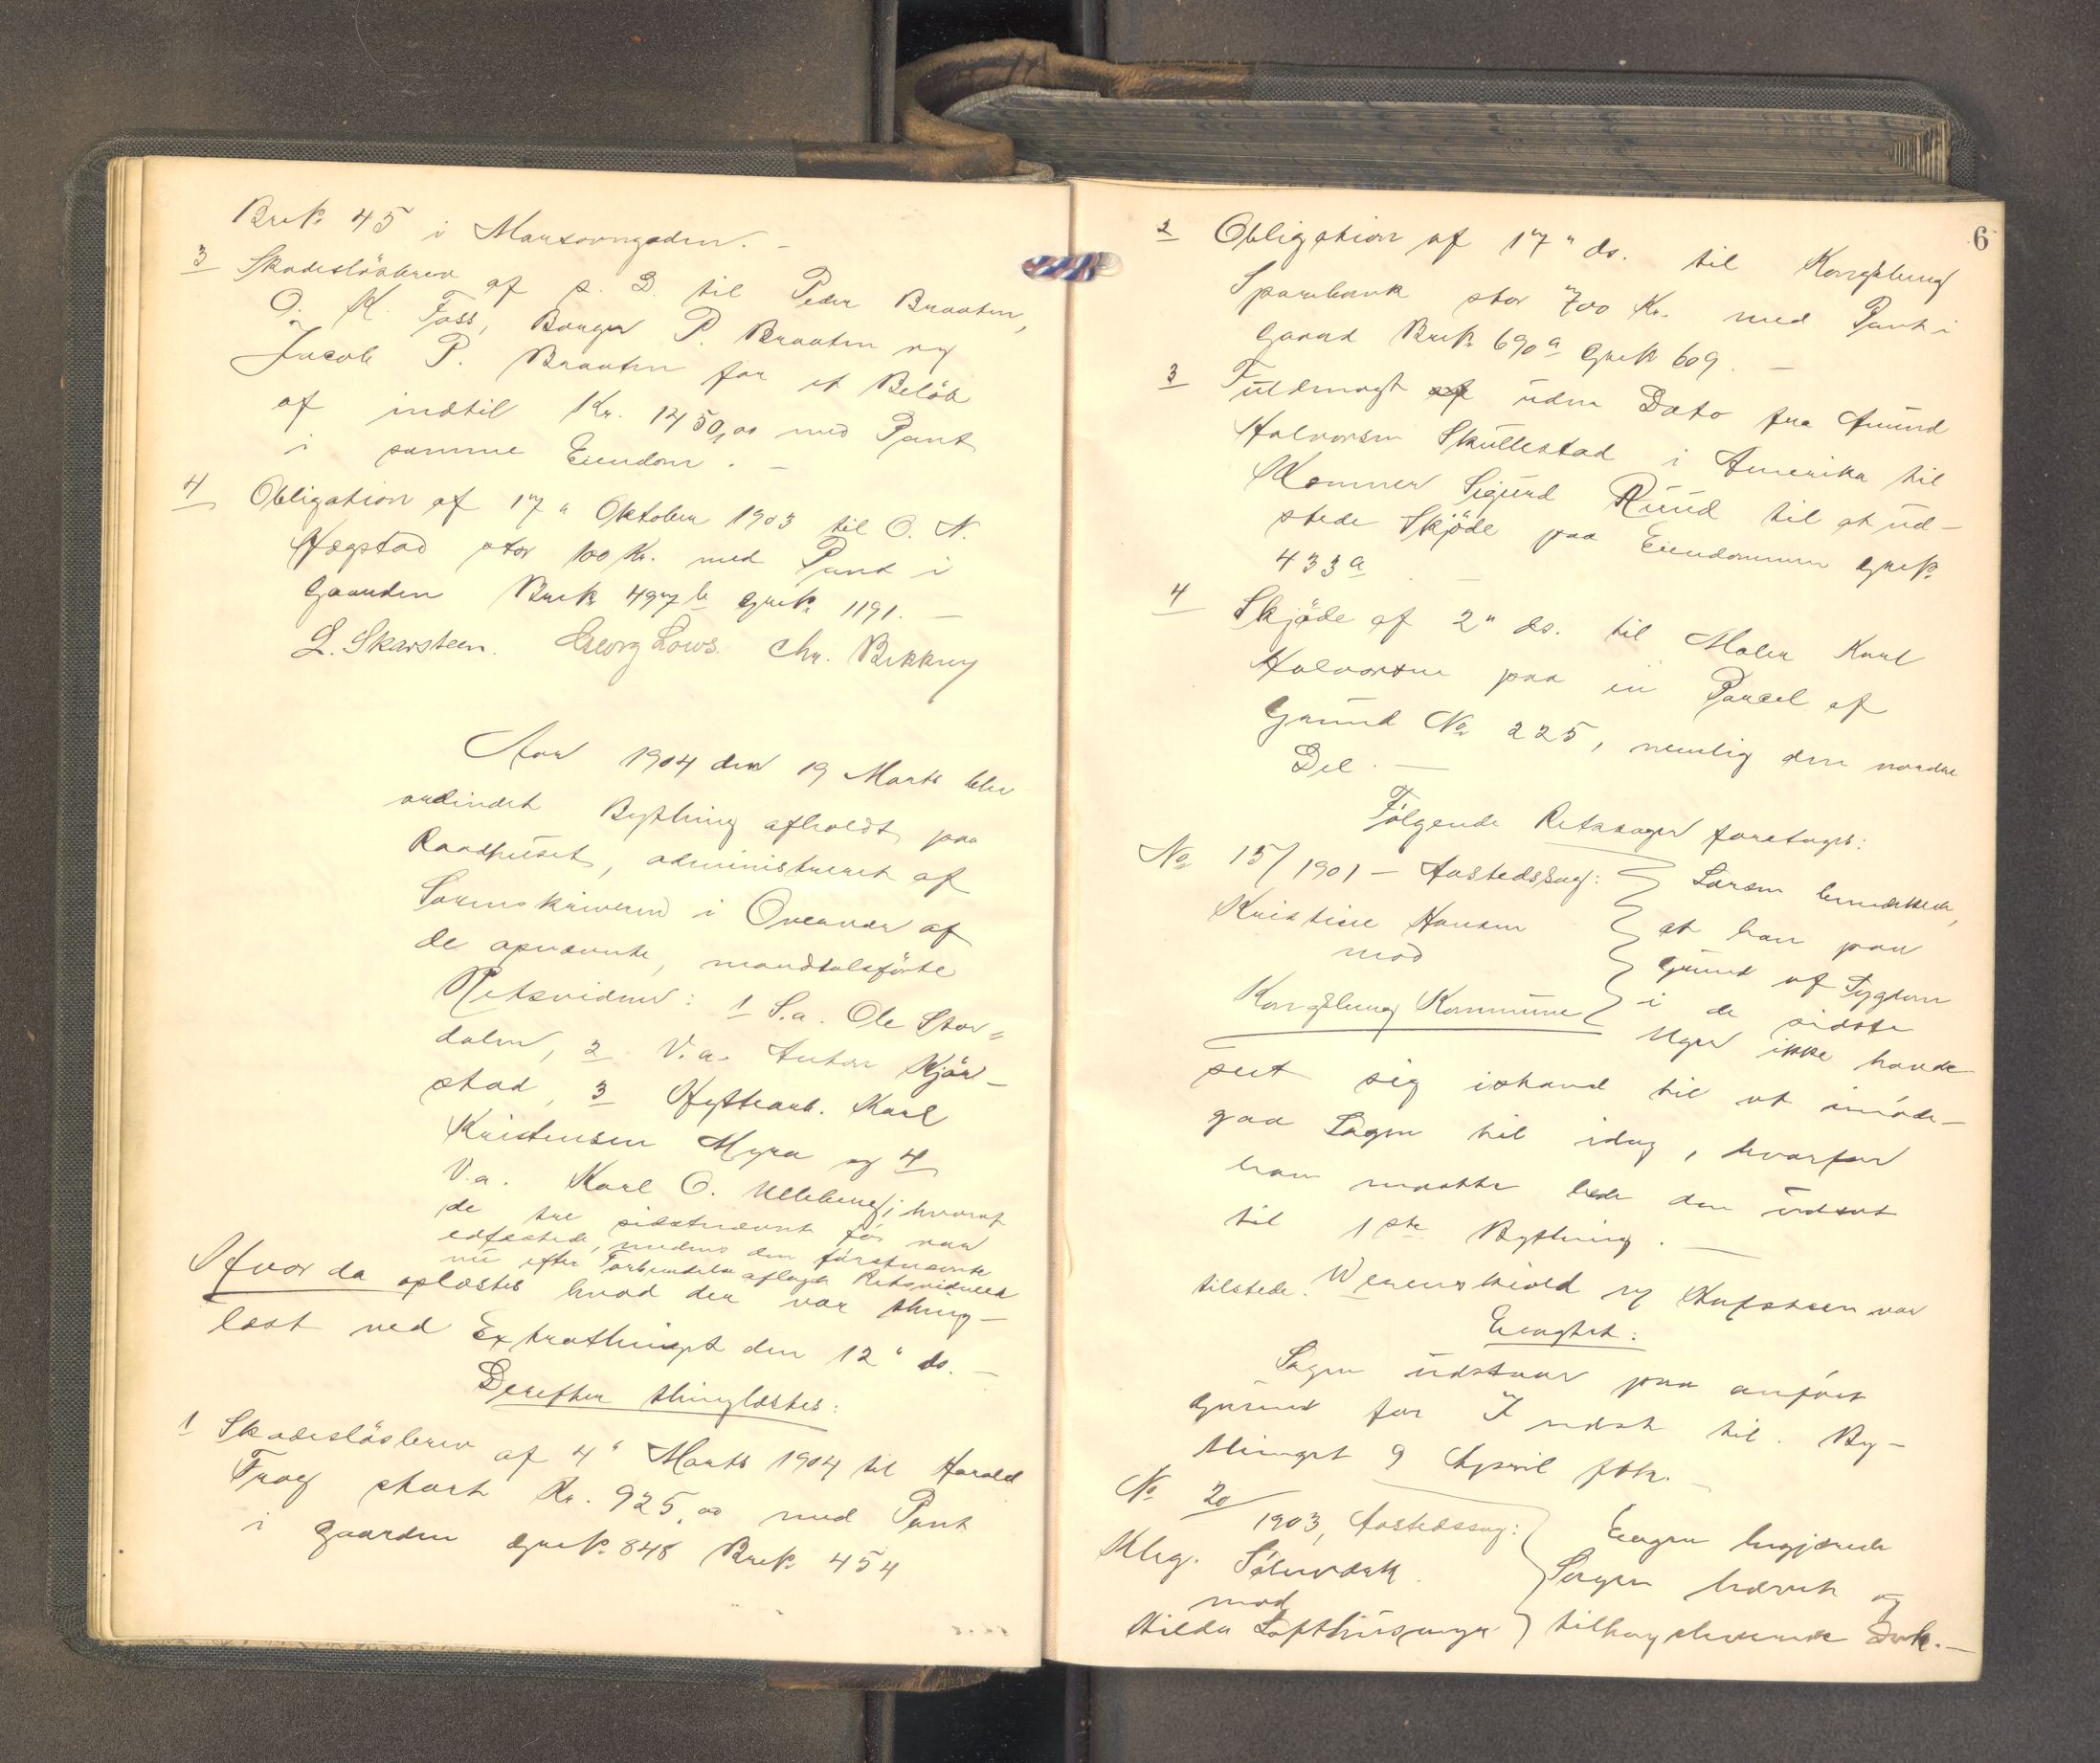 Brk. 45 i
3 Skadesløsbrev af s. D. til Peder Braaten,
O. K. Foss, Borger P. Braaten og
Jacob P. Braaten for et Beløb
af indtil Kr. 1450,00 med Pant
i samme Eiendom. –
4 Obligation af 17" Oktober 1903 til O. N.
Hægstad stor 100 Kr. med Pant i
Gaarden Brk. 497 b Grk. 1191. –
L. Skarsteen. Georg Lows. Chr. Bekkevy
Aar 1904 den 19 Marts blev
ordinært Bything afholdt paa
Raadhuset, administreret af
Sorenskriveren i Overvær af
de opnævnte, mandtalsførte
Retsvidner: 1 S.a. Ole Stor=
dalen, 2 V.a. Anton Kjör-
stad, 3 Hyttearb. Karl
Kristensen Myra og 4
V.a. Karl O. Ulleberg; hvoraf
de tre sidstnævnte før var
edfæstede, medens den førstnævnte
nu efter Forbindelse aflagde Retsvidneed
Hvor da oplæstes hvad der var thing-
læst ved Extrathinget den 12" ds. –
Derefter thinglæstes:
1 Skadesløsbrev af 4" Marts 1904 til Harald
Frog stort Kr. 925,00 med Pant
i Gaarden Grk. 848 Brk. 454
6
2 Obligation af 17" ds. til Kongsberg
Sparebank stor 700 Kr. med Pant i
Gaard Brk. 690 a Grk 609. –
3 Fuldmagt af uden Dato fra Amund
Halvorsen Skullestad i Amerika til
Kæmner Sigurd Ruud til at ud-
stede Skjøde paa Eiendommen Grk.
433 a. –
4 Skjøde af 2" ds. til Maler Karl
Halvorsen paa en Parcel af
Grund No 225, nemlig den nordre
Del. –
Følgende Retssager foretoges:
No 15/1901 – Aastedssag: Larsen bemærkede,
Kristine Hansen at han paa
mod Grund af Sygdom
Kongsberg Kommune i de sidste
Uger ikke havde
seet sig istand til at imøde-
gaa Sagen til idag, hvorfor
han maatte bede den udsat
til 1ste Bything. –
Werenskiold og Kufsteen var
tilstede.
Eragtet:
Sagen udstaar paa anført
Grund for I næst til By-
thinget 9 April førk.
No 20/1903, Aastedssag: Engen begjærede
Kbg. Sølvværk Sagen hævet og
mod
Hilda Lofthusunger tilbagelevering Dok. –